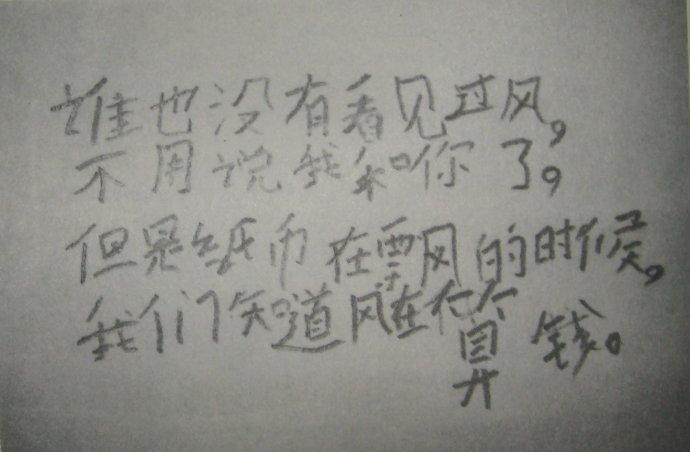 谁也没有看见过风，
不用说我和你了。
但是纸币在飘风的时候，
我们知道风在算钱。